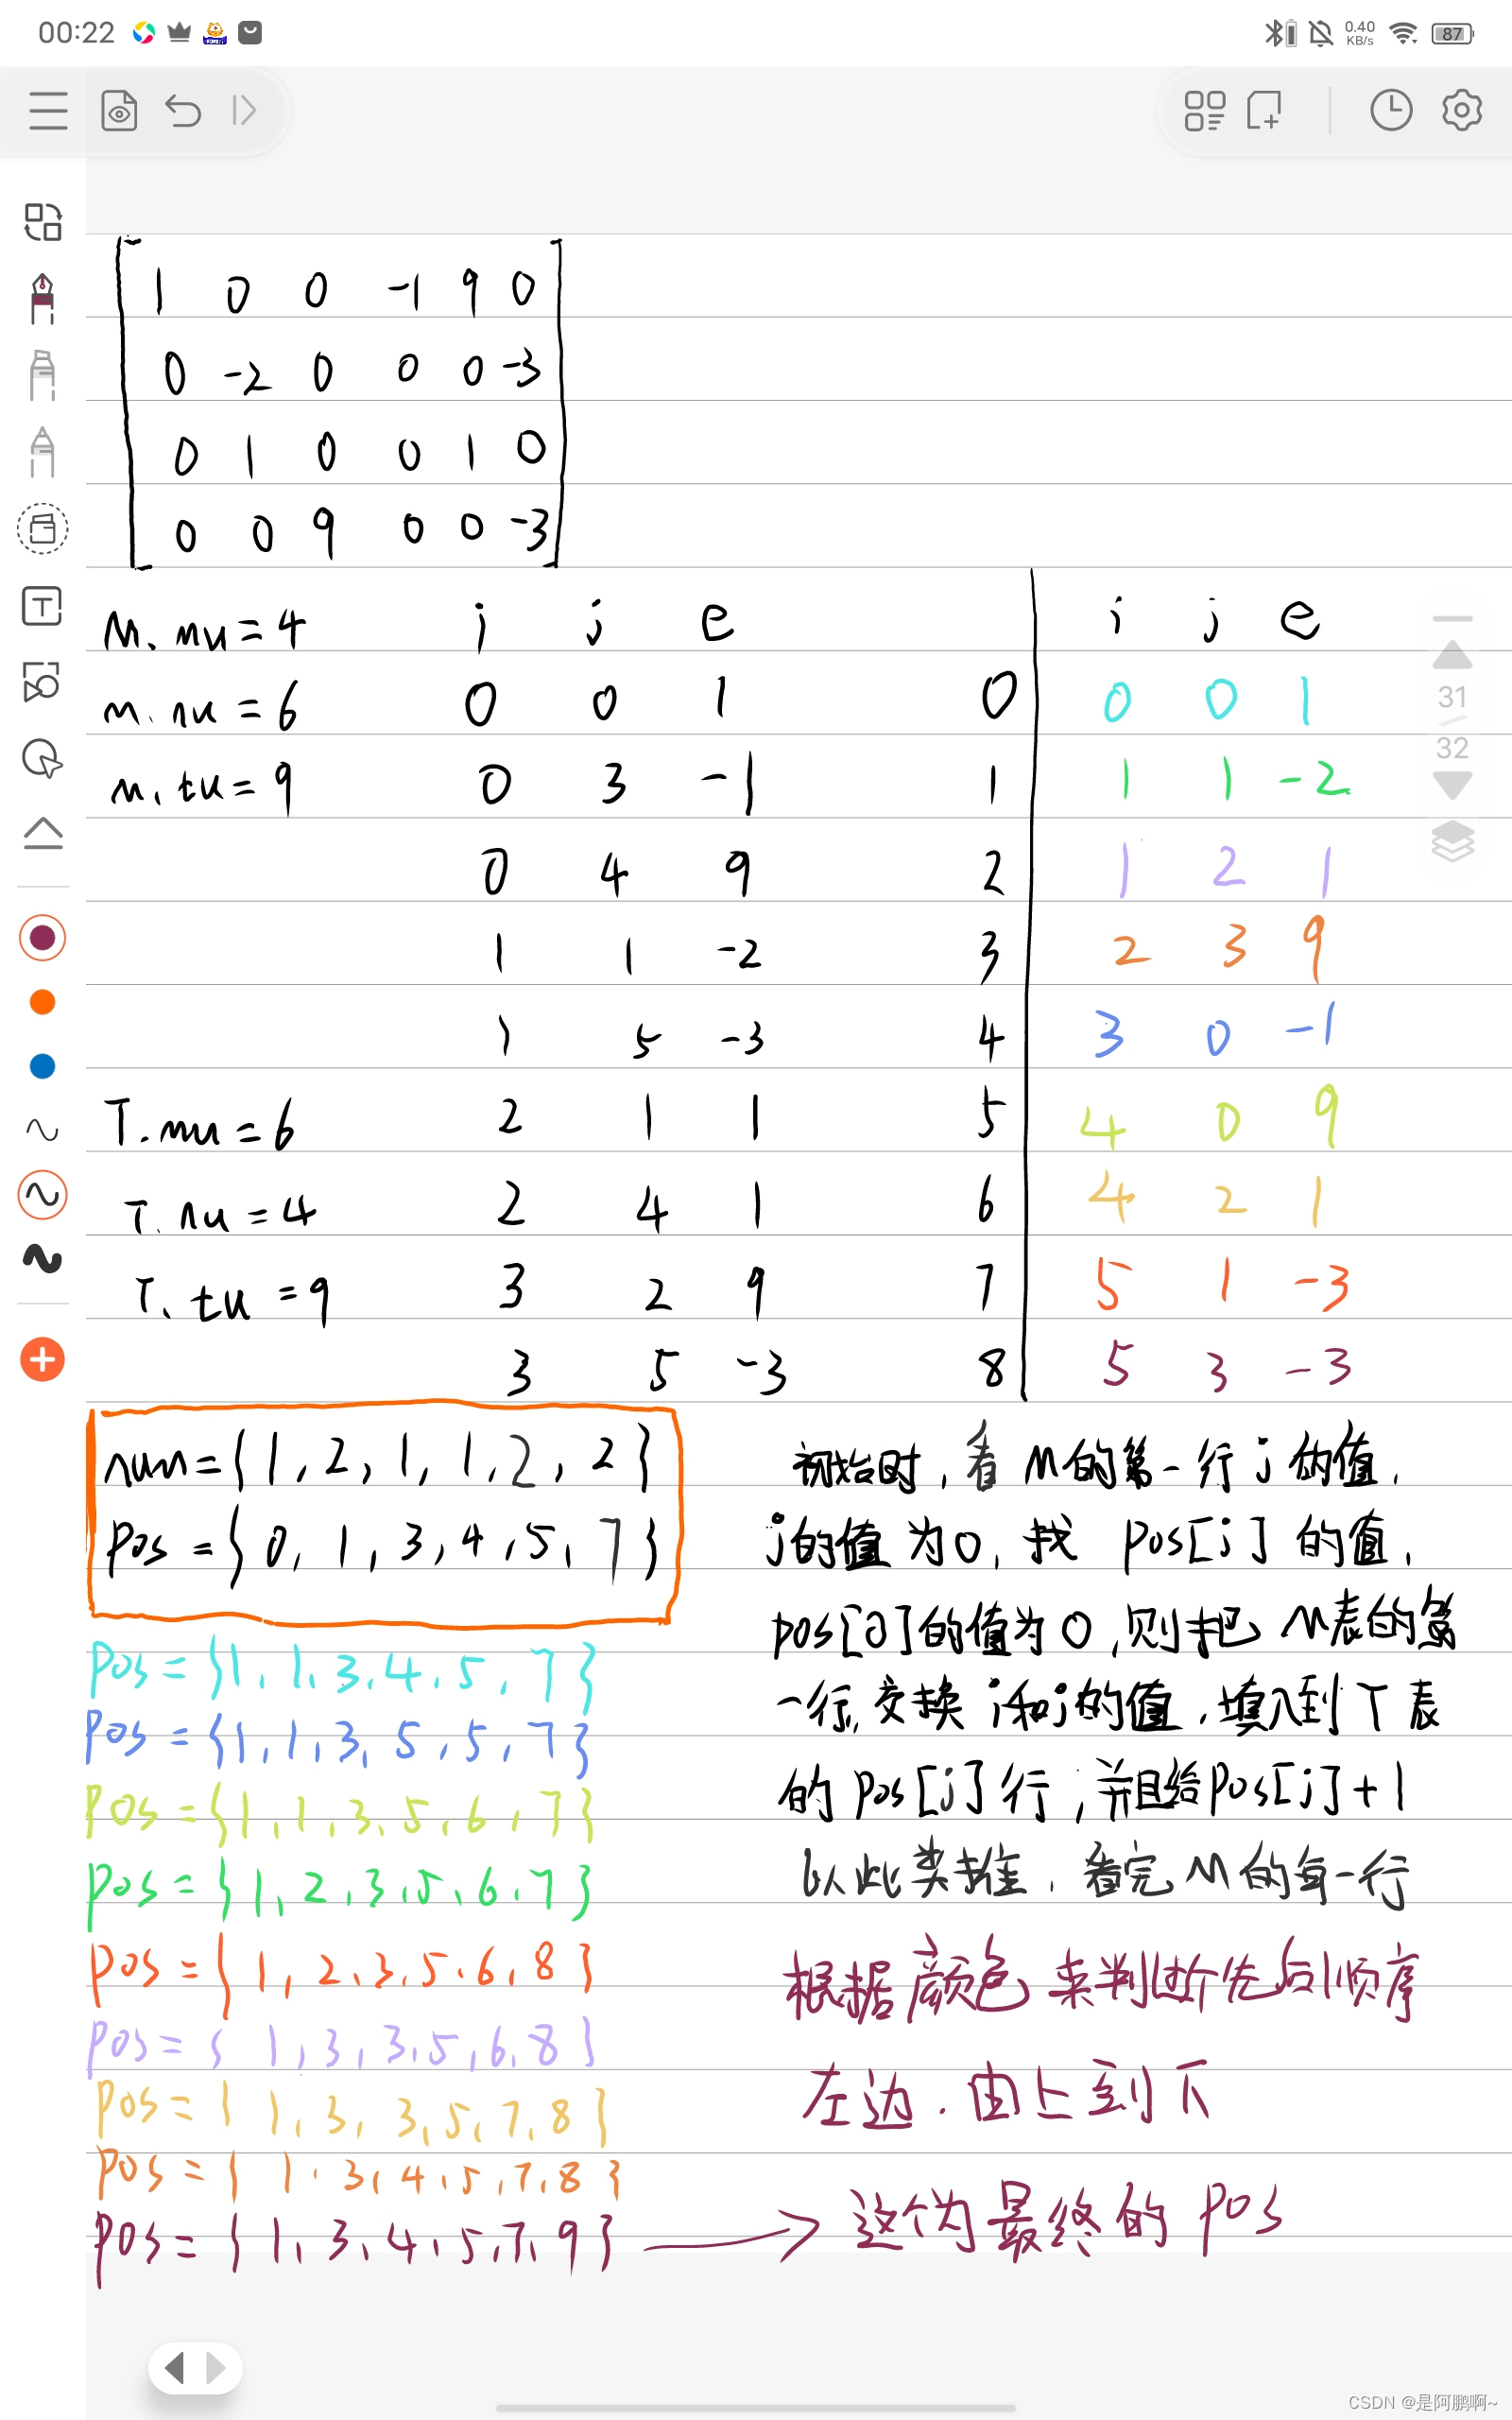 00:22
0.40
KB/s
87
1 0 0 -1 9 0
0 -2 0 0 0 -3
0 1 0 0 1 0
0 0 9 0 0 -3
M.mu=4 i j e i j e
m.nu=6 0 0 1 0 0 0 1
m.tu=9 0 3 -1 1 1 1 -2
0 4 9 2 1 2 1
1 1 -2 3 2 3 9
1 5 -3 4 3 0 -1
T.mu=6 2 1 1 5 4 0 9
T.nu=4 2 4 1 6 4 2 1
T.tu=9 3 2 9 7 5 1 -3
3 5 -3 8 5 3 -3
31
32
num={1,2,1,1,2,2}
Pos={0,1,3,4,5,7}
Pos={1,1,3,4,5,7}
Pos={1,1,3,5,5,7}
Pos={1,1,3,5,6,7}
Pos={1,2,3,5,6,7}
Pos={1,2,3,5,6,8}
Pos={1,3,3,5,6,8}
Pos={1,3,3,5,7,8}
Pos={1,3,4,5,7,8}
Pos={1,3,4,5,7,9}
初始时,看M的第一行j的值,
j的值为0,找pos[j]的值,
pos[0]的值为0,则把M表的第
一行,交换i和j的值,填入到T表
的Pos[j]行,并且给Pos[j]+1
以此类推,看完M的每一行
根据颜色来判断先后顺序
左边.由上到下
这个为最终的Pos
CSDN @是阿鹏啊~